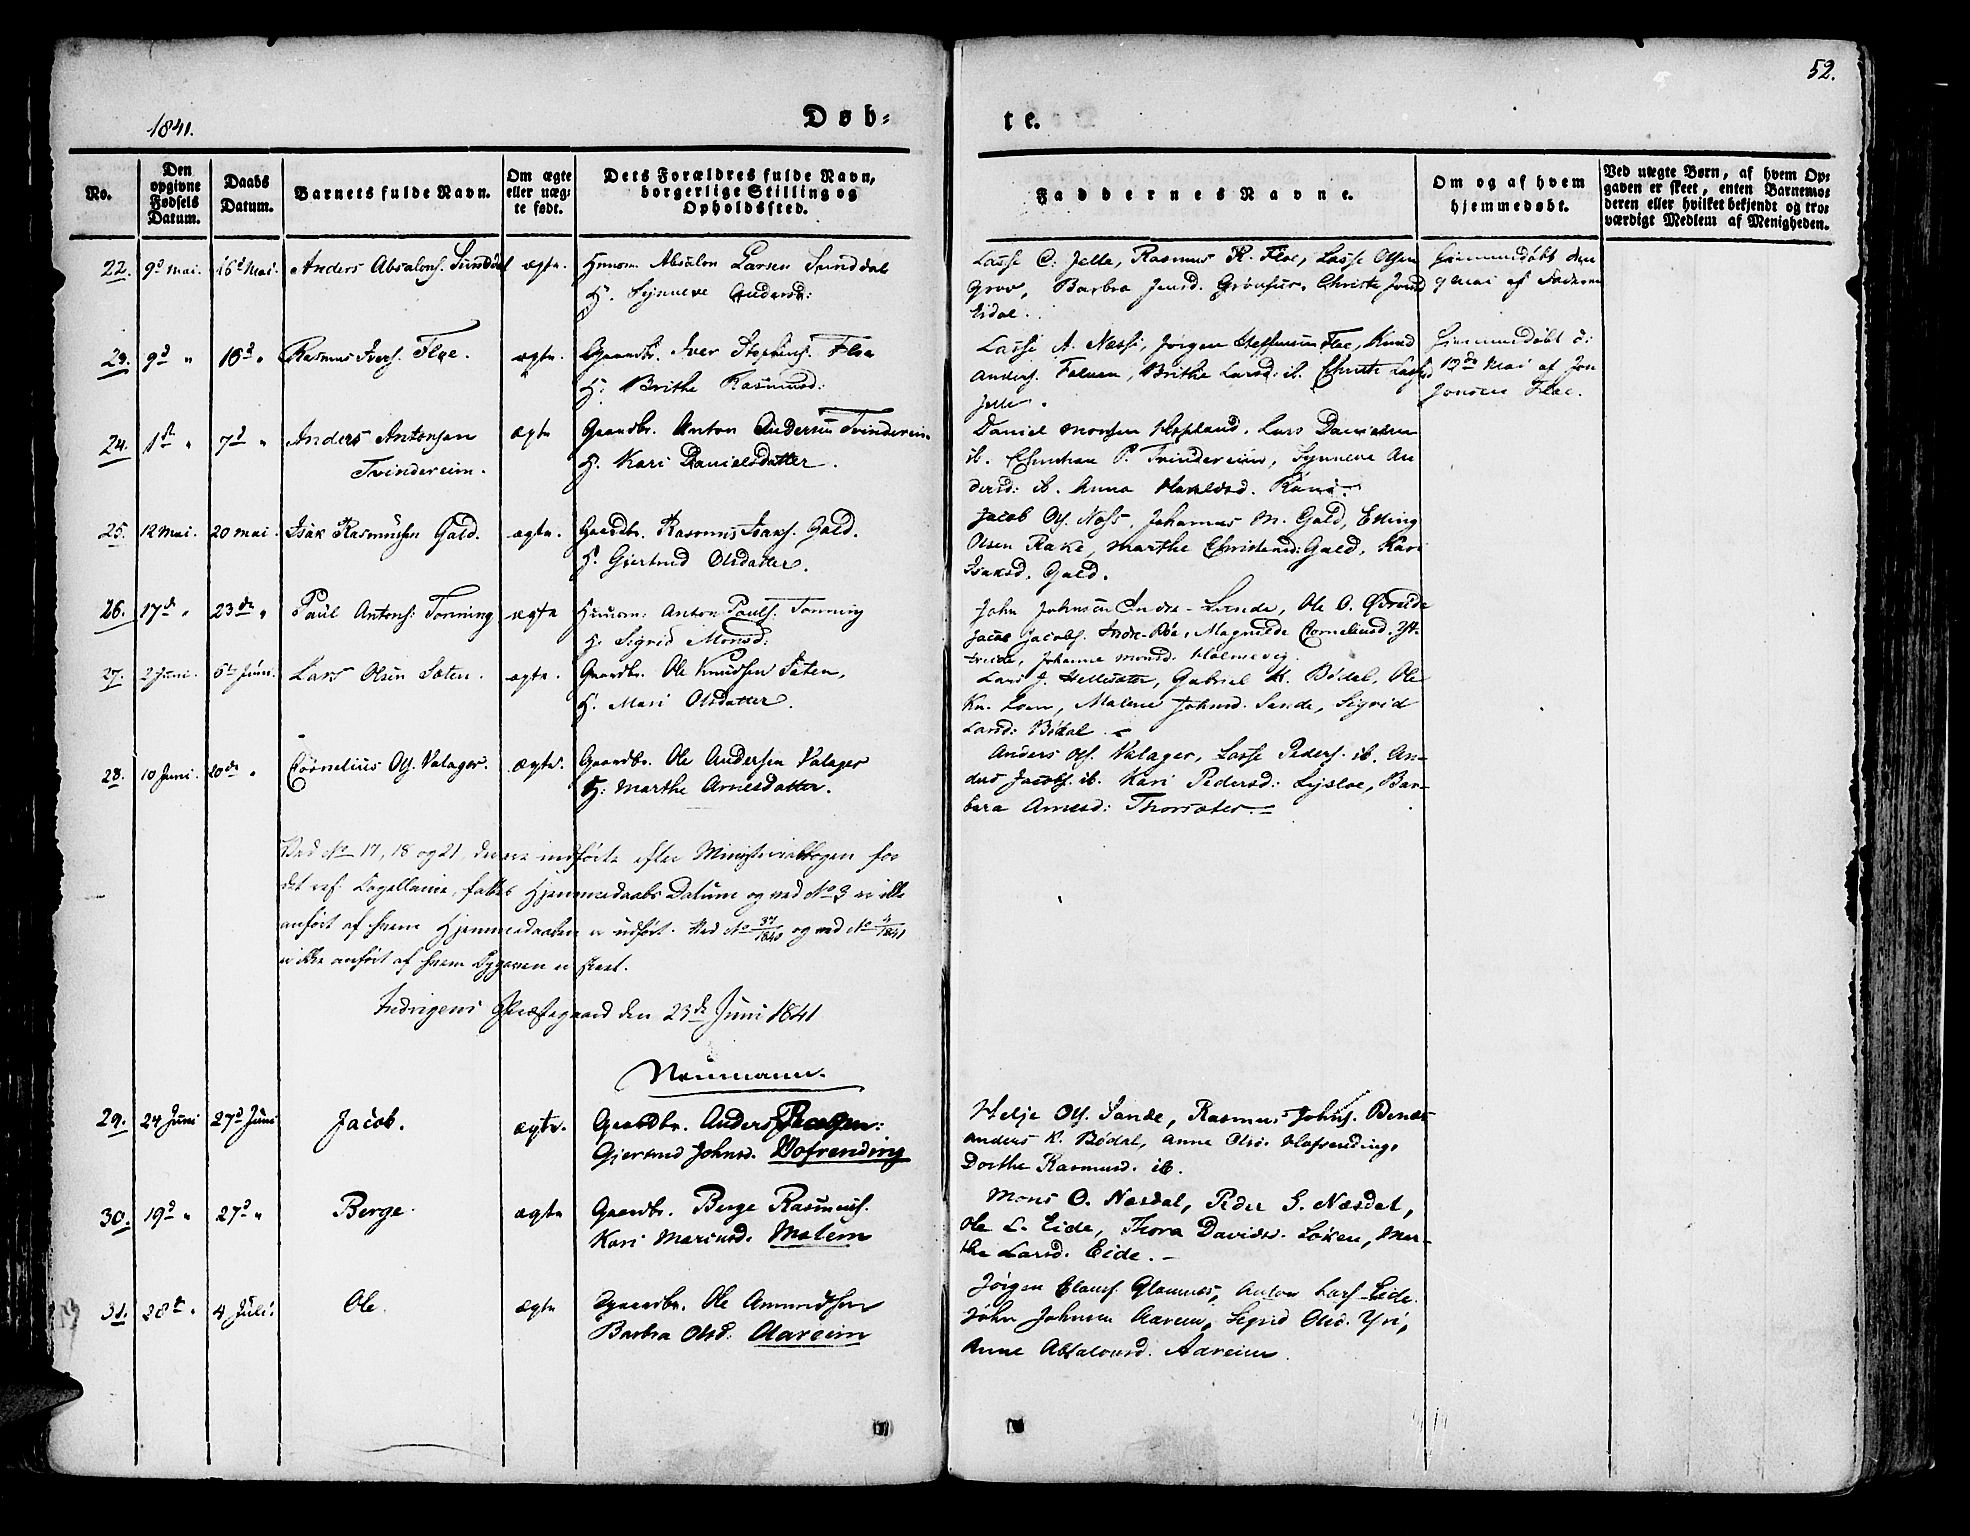 52.
1841.
Døb=
te.
No.
Den opgivne Fødsels Datum.
Daabs Datum.
Barnets fulde Navn.
Om ægte eller uæg-te født.
Dets Forældres fulde Navn, borgerlige Stilling og Opholdssted.
Faddernes Navne.
Om og af hvem hjemmedøbt.
Ved uægte Børn, af hvem Op-gaven er skeet, enten Barnemo-deren eller hvilket bekjendt og tro-værdigt Medlem af Menigheden.
22. 9d Mai. 16d Mai. Anders Absalons. Sunddal ægte. Huusm. Absalon Larsen Sunddal
H. Synneve Andersd:
Lasse C. Jelle, Rasmus R. Floe, Lasse Olsen
Grov, Barbra Jensd. Grønfur. Christi Jonsd
Eidal.
Hjemmedøbt den
9 Mai af Faderen
23. 9d " 16d " Rasmus Ivers. Floe. ægte. Gaardbr. Iver Stephens. Floe
H. Brithe Rasmusd:
Lasse A. Nesse, Jørgen Steffensen Floe, Knud
Anders. Folven, Brithe Larsd: ib. Christi Lassed
Jelle.
Hjemmedøbt d:
12de Mai af Jon
Jonsen Floe.
24. 1ste " 7d " Anders Antonsen
Tvindereim.
ægte Gaardbr. Anton Andersen Tvindereim
H. Kari Danielsdatter.
Daniel Monsen Hopland, Lars Danielsen
ib. Christian P. Tvindereim, Synneve An
dersd: ib. Anna Haraldsd. Rand.
25. 12 Mai. 20 Mai. Isak Rasmussen Gald. ægte. Gaardbr. Rasmus Isaks. Gald.
H. Gjertrud Olsdatter.
Jacob Ols. Næss, Johannes M. Gald, Elling
Olsen Rake, Marthe Christensd: Gald, Kari
Isaksd. Gald.
26. 17de " 23de " Paul Antons: Tonning ægte Huusm: Anton Pauls. Tonning
H. Sigrid Monsd:
John Johnsen Indre-Sunde, Ole O. Øvreide
Jacob Jacobs. Indre-Bøe, Magnilde Corneliusd. Yt-
reeide, Johanne Monsd. Holmevig.
27. 2 Juni. 6te Juni. Lars Olsen Sæten. ægte. Gaardbr. Ole Knudsen Sæten,
H. Mari Olsdatter.
Lars J. Hellesæter, Gabriel K. Bødal, Ole
Kn. Loen, Malene Johnsd. Sande, Sigrid
Larsd: Bødal.
28. 10 Juni. 20de " Cornelius Ols. Valager. ægte. Gaardbr. Ole Andersen Valager
H: Marthe Arnesdatter.
Anders Ols. Valager, Lasse Peders. ib. An-
ders Jacobs. ib. Kari Pedersd: Lysloe, Bar-
bara Arnesd: Thorsæter.
Ved No 17, 18 og 21, der ere indførte efter Ministerialbogen for
det ref. Capellanie, fattes Hjemmedaabs Datum og ved No 3 er ikke
anført af hvem Hjemmedaaben er udført. Ved No 37/1840 og ved No 4/1841
er ikke anført af hvem Opgaven er skeet.
Indvigens Præstegaard den 23de Juni 1841
Neumann.
29. 24 Juni 27d Juni Jacob. ægte. Gaardbr. Anders
Gjertrud Johnsd. Hofrending
Helje Ols. Sande, Rasmus Johns. Benæs
Anders K. Bødal, Anne Olsd. Hofrending,
Dorthe Rasmusd. ib.
30. 19d " 27d " Berge. ægte Gaardbr. Berge Rasmuss.
Kari Mariusd. Molem
Mons O. Næsdal, Peder S. Næsdal,
Ole L. Eide, Thora Davidsd. Løken, Mar-
the Larsd. Eide.
31. 28de " 4 Juli. Ole. ægte Gaardbr. Ole Amundsen
Barbra Olsd: Aareim
Jørgen Claus. Glomnes, Anton Lars. Eide.
John Johnsen Aareim, Sigrid Olsd. Yri,
Anne Absalonsd. Aareim.